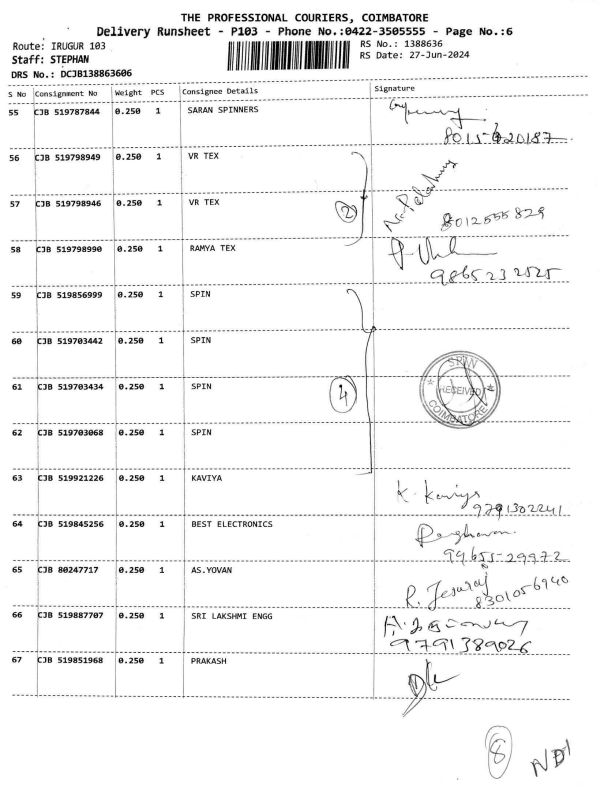 THE PROFESSIONAL COURIERS, COIMBATORE
Delivery Runsheet - P103 - Phone No.:0422-3505555 - Page No.:6
Route: IRUGUR 103
RS No.: 1388636
Staff: STEPHAN
RS Date: 27-Jun-2024
DRS No.: DCJB138863606
S No Consignment No Weight PCS Consignee Details Signature
55 CJB 519787844 0.250 1 SARAN SPINNERS
56 CJB 519798949 0.250 1 VR TEX
2
57 CJB 519798946 0.250 1 VR TEX 8012555829
58 CJB 519798990 0.250 1 RAMYA TEX
9865232525
59 CJB 519856999 0.250 1 SPIN
60 CJB 519703442 0.250 1 SPIN
SPIN
61 CJB 519703434 0.250 1 SPIN 4 RECEIVED
COIMBATORE
62 CJB 519703068 0.250 1 SPIN
63 CJB 519921226 0.250 1 KAVIYA K. Kaviya
9791302241
64 CJB 519845256 0.250 1 BEST ELECTRONICS
99655-29972
65 CJB 80247717 0.250 1 AS.YOVAN R. Jesuraj
8301056940
66 CJB 519887707 0.250 1 SRI LAKSHMI ENGG
9791389026
67 CJB 519851968 0.250 1 PRAKASH
8